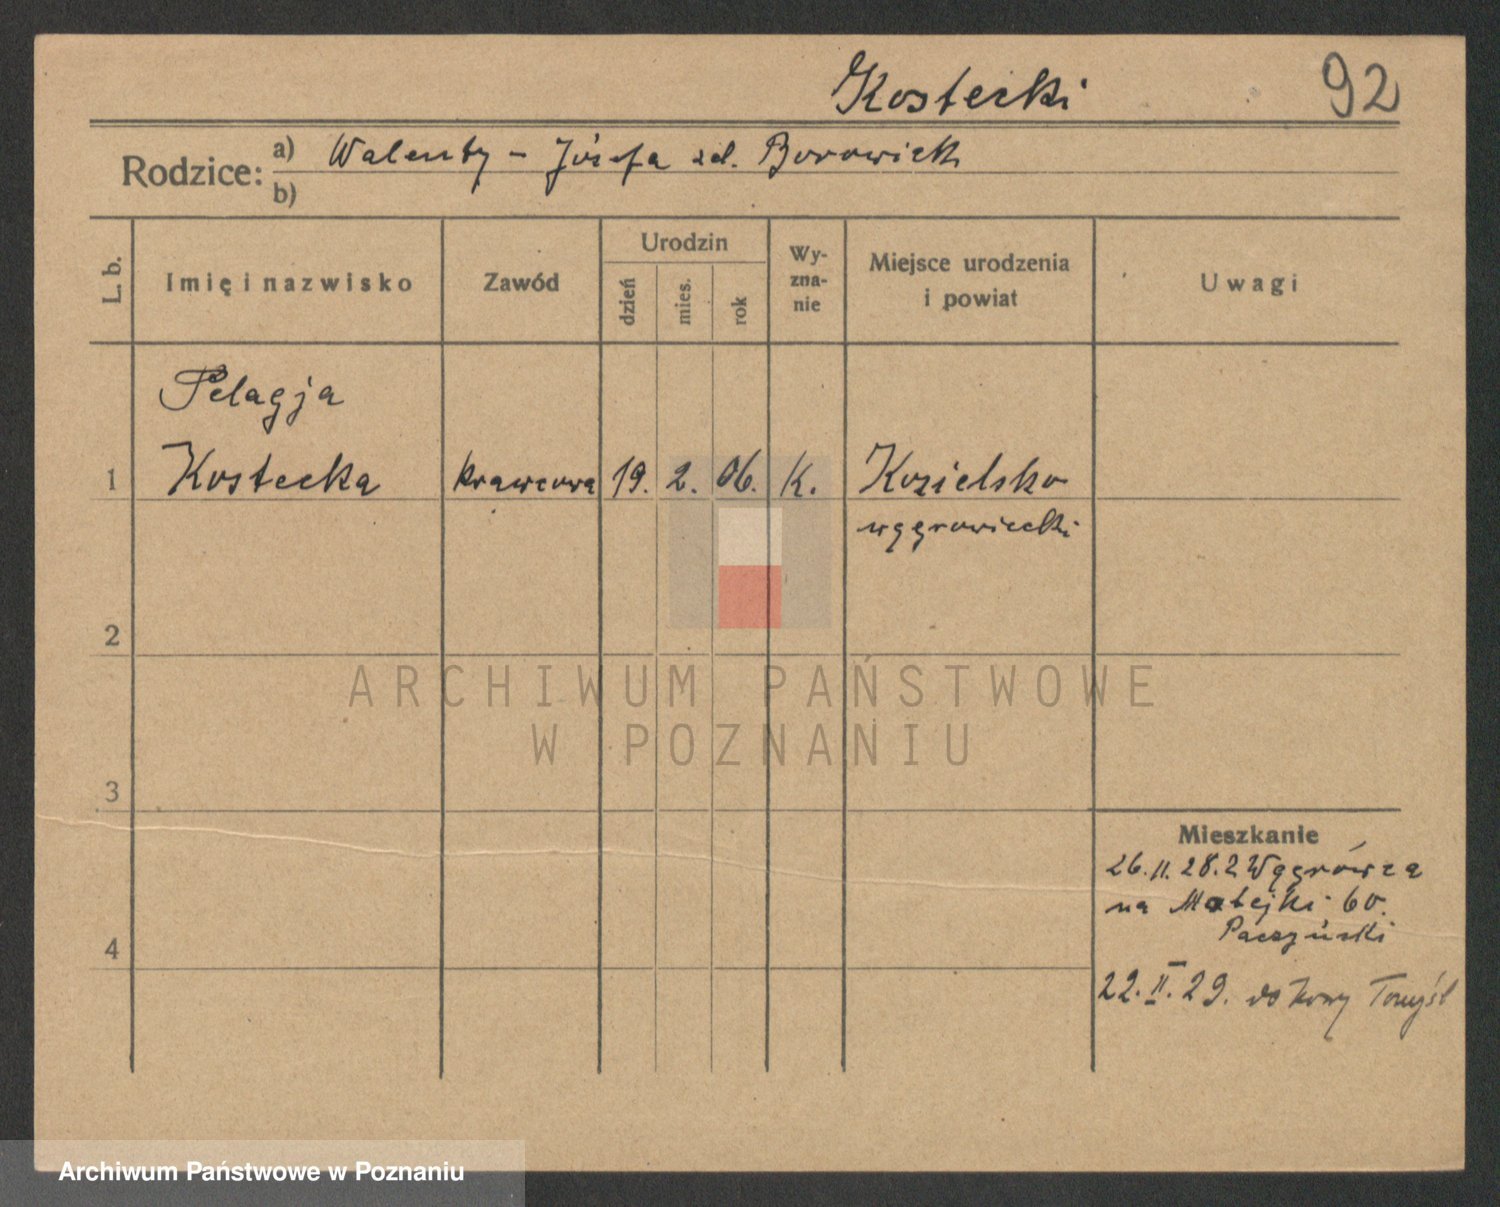 Kostecki
92
Rodzice: a) Walenty - Józefa zd. Borowick
b)
L. b.
Imię i nazwisko
Zawód
Urodzin
dzień
mies.
rok
Wy-
zna-
nie
Miejsce urodzenia
i powiat
Uwagi
Pelagja
1 Kostecka krawcowa 19. 2. 06. K. Kozielsko
wągrowiecki
2
ARCHIWUM PAŃSTWOWE
W POZNANIU
3
Mieszkanie
26.II.28. z Wągrówca
na Matejki 60.
Paczyński
4
22.II.29. do Nowy Tomyśl
Archiwum Państwowe w Poznaniu